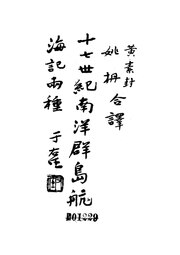 黃素封
姚枬合譯
十七世紀南洋群島航
海記兩種
于右任